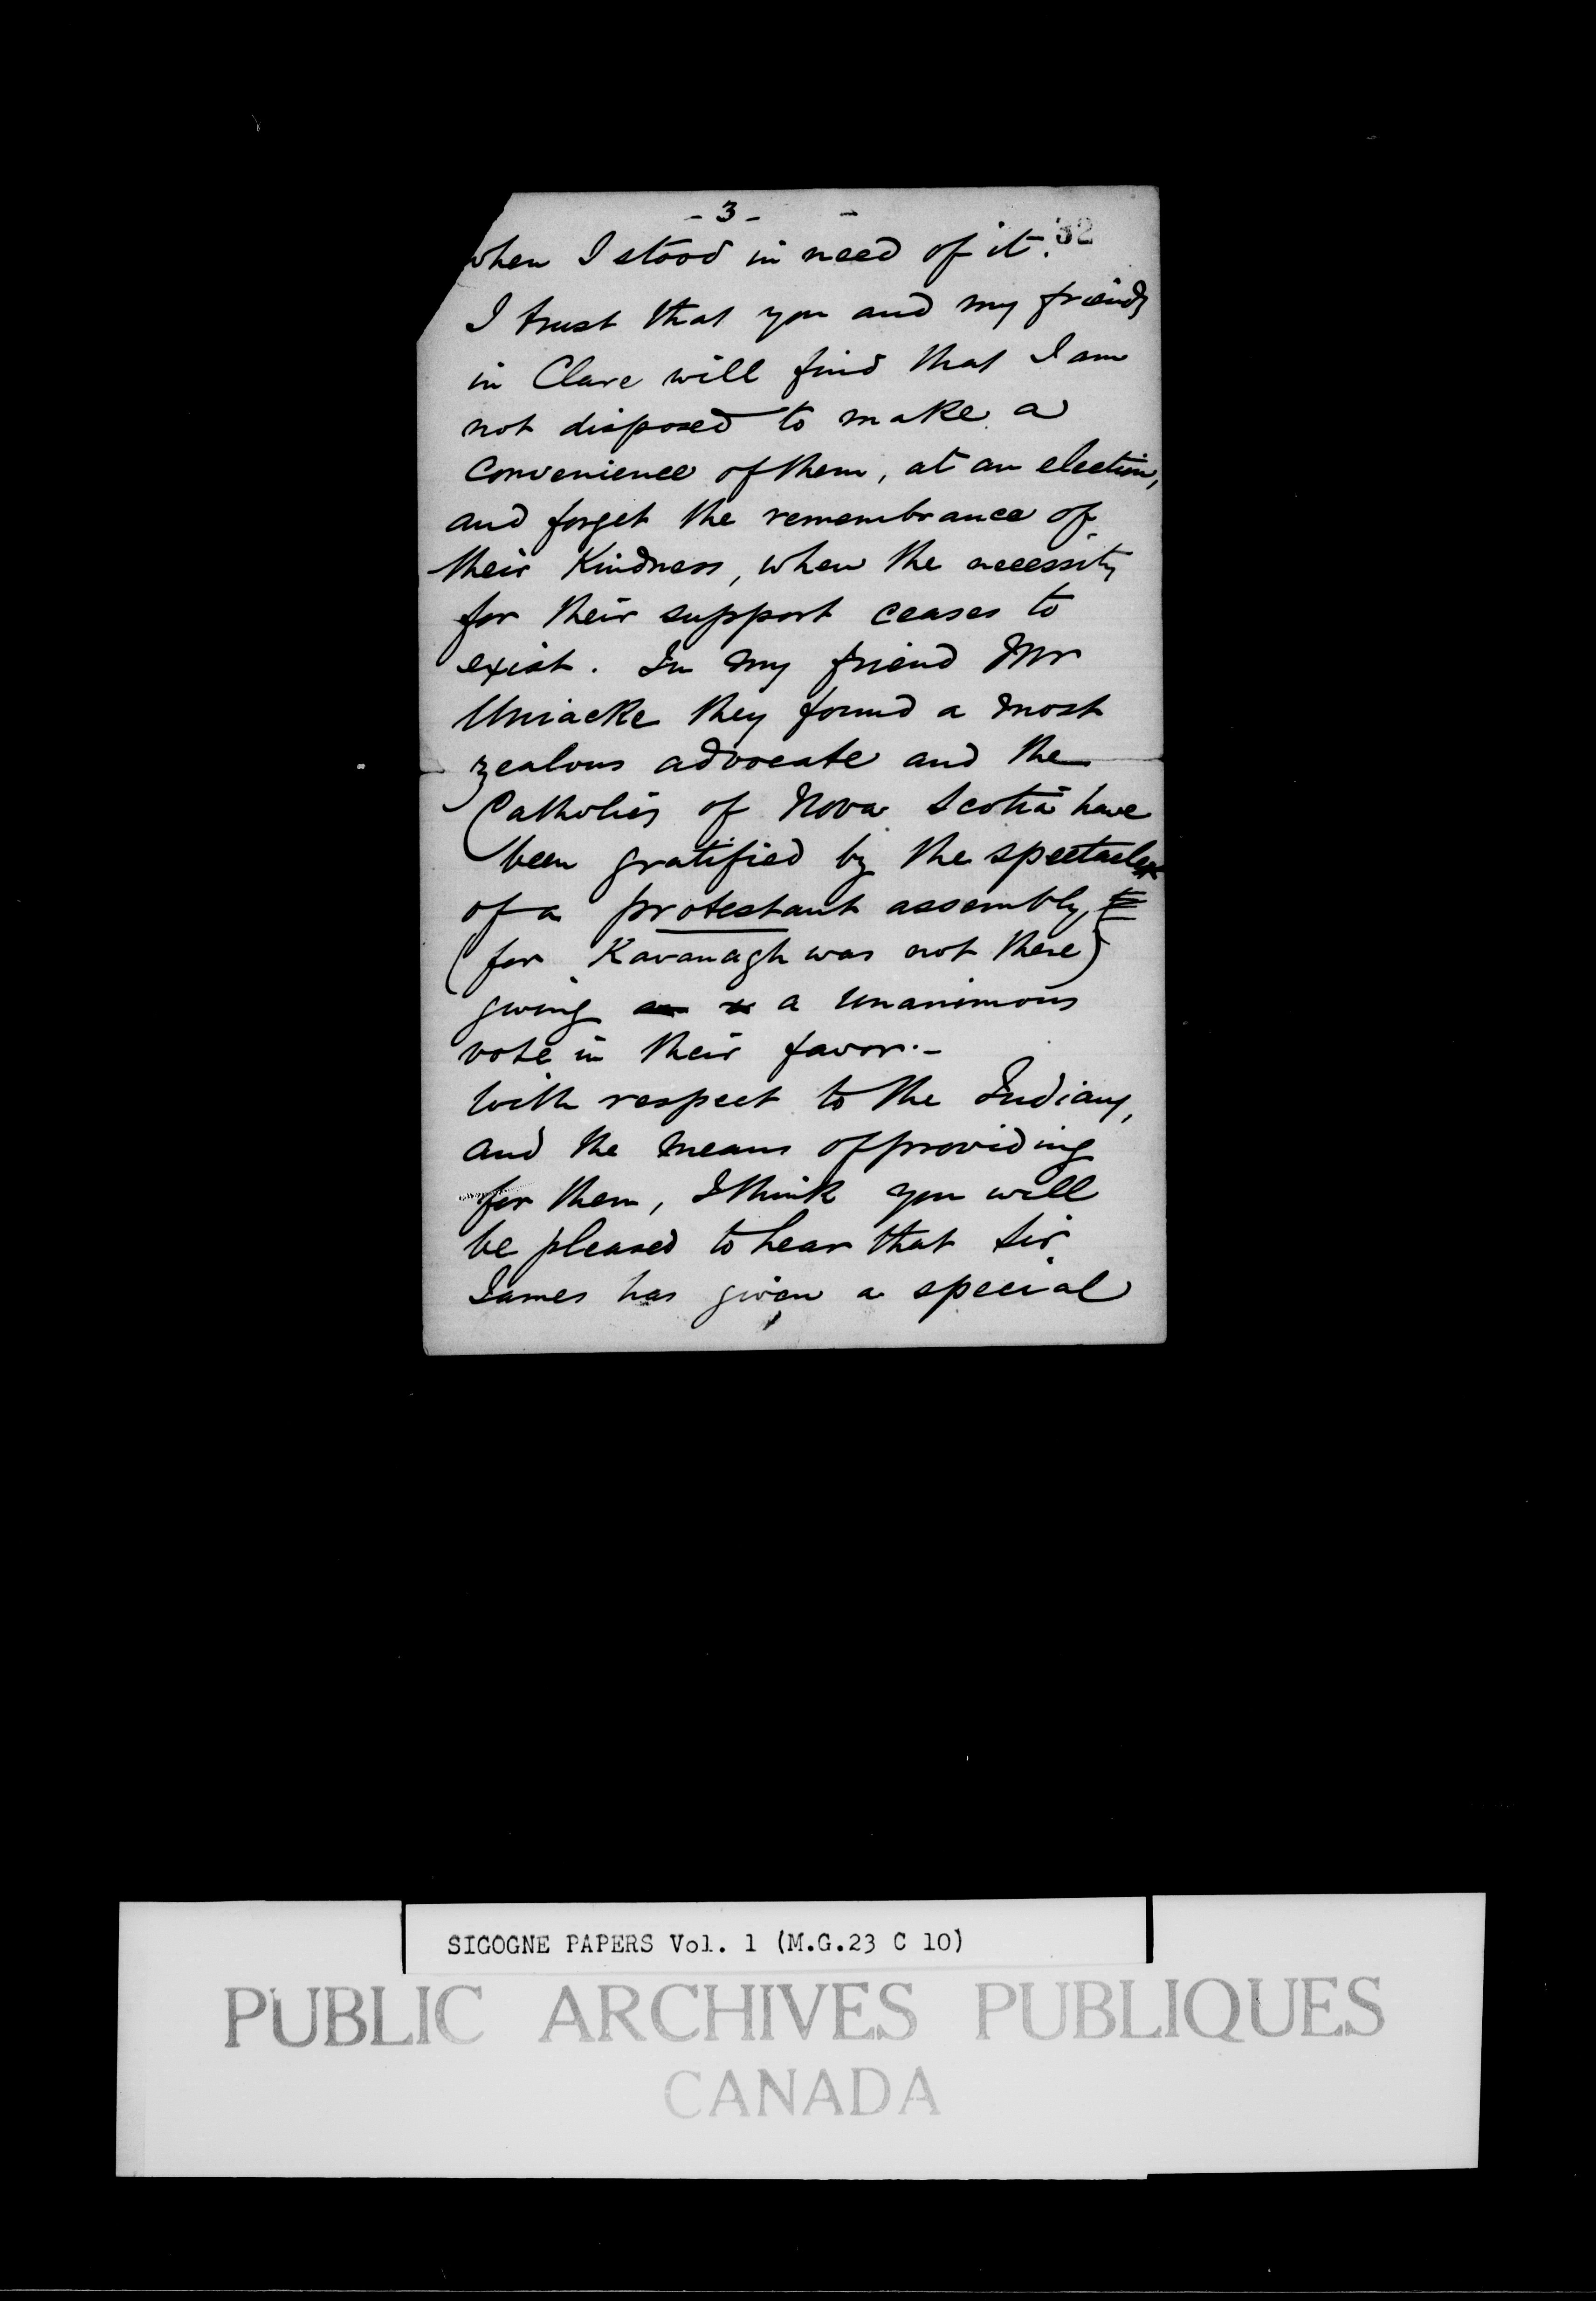 - 3 -
32
when I stood in need of it.
I trust that you and my friends
in Clare will find that I am
not disposed to make a
convenience of them, at an election,
and forget the remembrance of
their Kindness, when the necessity
for their support ceases to
exist. In my friend Mr
Uniacke they found a most
zealous advocate and the
Catholics of Nova Scotia have
been gratified by the spectacle
of a protestant assembly,
(for Kavanagh was not there)
giving a unanimous
vote in their favor.-
With respect to the Indians,
and the means of providing
for them, I think you will
be pleased to hear that Sir
James has given a special
SIGOGNE PAPERS Vol. 1 (M.G.23 C 10)
PUBLIC ARCHIVES PUBLIQUES
CANADA